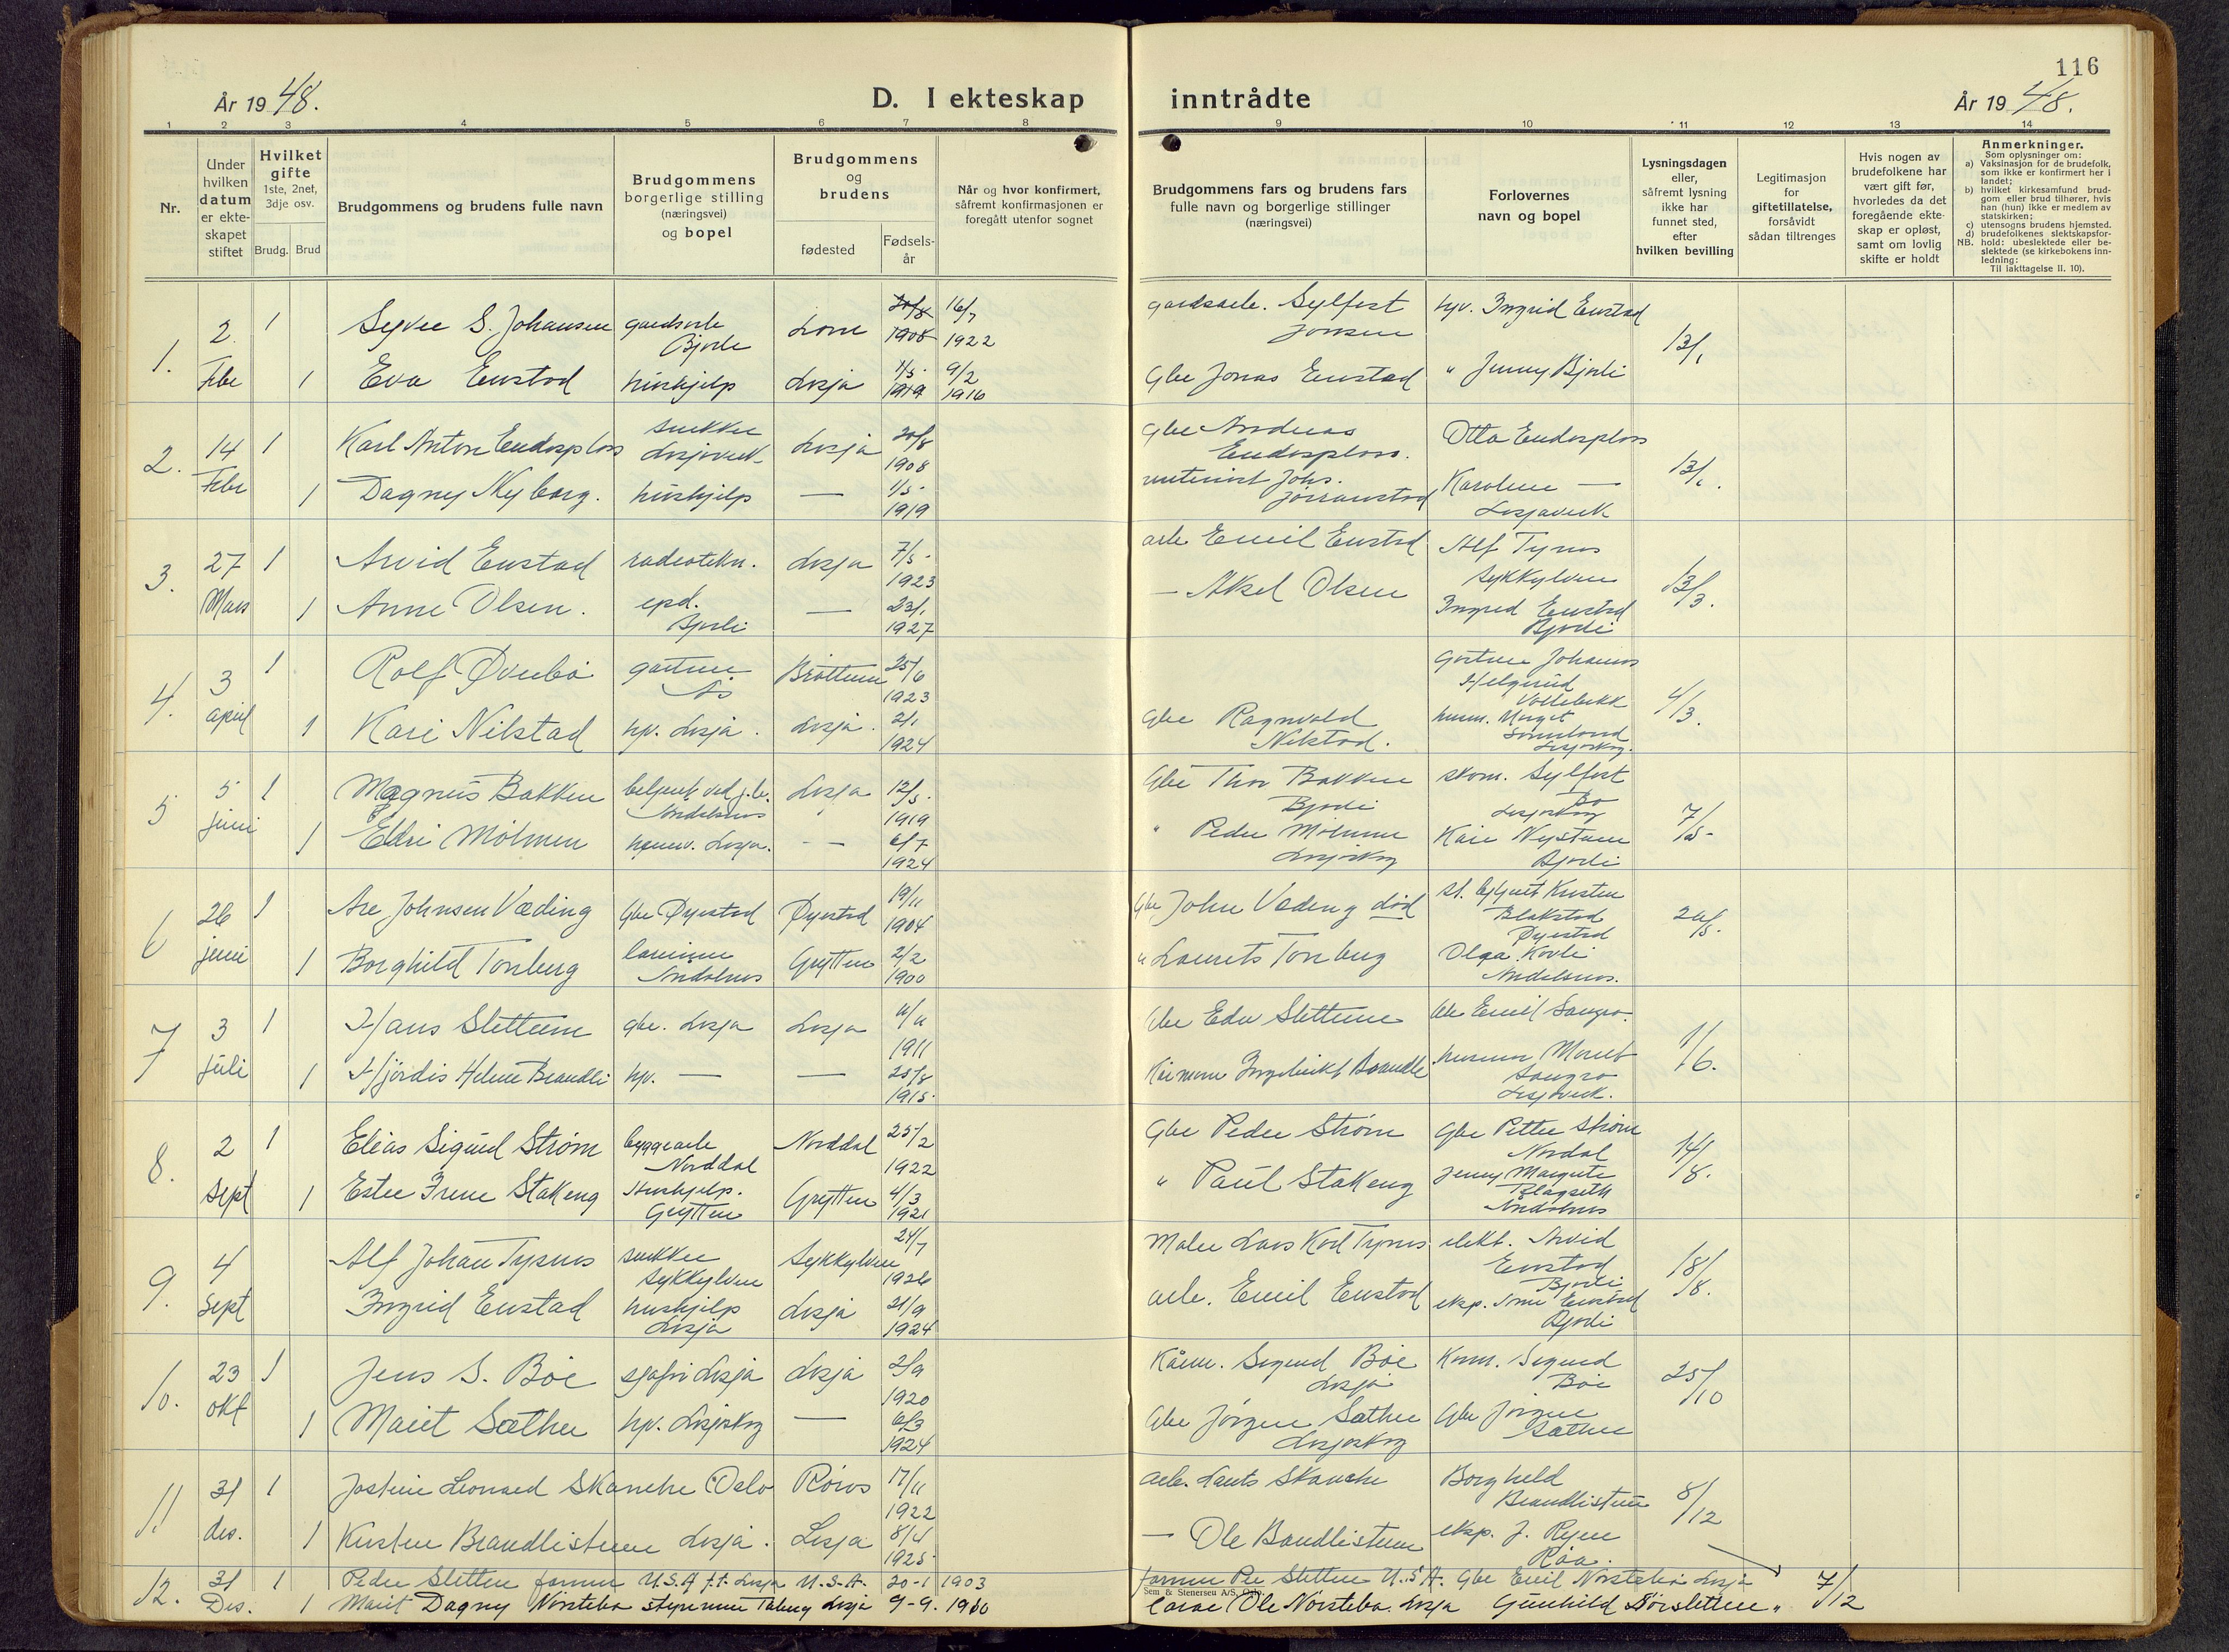 116
År 1948.
D. I ekteskap inntrådte
År 1948.
1 2 3 4 5 6 7 8 9 10 11 12 13 14
Nr.
Under hvilken datum er ekteskapet stiftet
Hvilket gifte 1ste, 2net, 3dje osv.
Brudg. Brud
Brudgommens og brudens fulle navn
Brudgommens borgerlige stilling (næringsvei) og bopel
Brudgommens og brudens
fødested
Fødsels-år
Når og hvor konfirmert, såfremt konfirmasjonen er foregått utenfor sognet
Brudgommens fars og brudens fars fulle navn og borgerlige stillinger (næringsvei)
Forlovernes navn og bopel
Lysningsdagen eller, såfremt lysning ikke har funnet sted, efter hvilken bevilling
Legitimasjon for giftetillatelse, forsåvidt sådan tiltrenges
Hvis nogen av brudefolkene har vært gift før, hvorledes da det foregående ekteskap er opløst, samt om lovlig skifte er holdt
Anmerkninger.
Som oplysninger om:
a) Vaksinasjon for de brudefolk, som ikke er konfirmert her i landet;
b) hvilket kirkesamfund brudgom eller brud tilhører, hvis han (hun) ikke er medlem av statskirken;
c) utensogns brudens hjemsted.
d) brudefolkenes slektskapsforhold: ubeslektede eller beslektede (se kirkebokens innledning:
NB.
Til iakttagelse II. 10).
1. 2. Febr 1 S. Johansen Lom 1908 16/7 1922 Sylfest Jonsen hv. Ingrid Enstad 13/1
1 Eva Enstad hushjelp Lesja 1919 9/2 1916 Gbr Jonas Enstad " Jenny Bjorli
2. 14 Febr 1 Karl Anton Endresplass snekker Lesjaverk Lesja 20/8 1908 Gbr Andreas Endresplass. Otto Endresplass 13/1.
1 Dagny Nyborg. hushjelp — 1/5 1919 Johs. Jørranstad Karoline — Lesjaverk
3. 27 Mars 1 Arvid Enstad radiotekn. Lesja 7/5 1923 arb. Emil Enstad Alf Tynes Sykkylven 13/3.
1 Anne Olsen. epd. Bjorli — 23/1 1927 — Aksel Olsen Ingrid Enstad Bjorli
4. 3 april 1 Rolf Øverbø gartner Ås Brøttum 25/6 1923 Gartner Johannes Helgerud Vollebekk 4/3.
1 Kari Nilstad hv. Lesja. Lesja. 2/1 1924 Gbr Ragnvald Nilstad. Lesjaskog.
5 5 juni 1 Magnus Bakken Åndalsnes Lesja 12/5 1919 Gbr Thor Bakken Bjorli skom. Sylfest Bø Lesjaskog 7/5
1 Eldri Mølmen Lesja. — 6/7 1924 " Peder Mølmen Lesjaskog Kari Nystuen Bjorli
6 26 juni 1 Are Johnsen Væding Gbr Øyestad Øyestad 19/11 1904 Gbr John Væding død Blakstad Øyestad
1 Borghild Tonberg lærerinne Åndalsnes Grytten 2/2 1900 " Laurits Tonberg Olga Kavli Åndalsnes.
7 3 juli 1 Hans Slettum gbr. Lesja Lesja 11/11 1911 Gbr Edv Slettum Emil Sangro 1/6.
1 Hjørdis Helene Brandli hv. — — 25/8 1915 Ingebrikt Brandli Sangro Lesjaverk.
8. 2 Sept 1 Elias Sigurd Strøm byggearb Norddal Norddal 25/2 1922 Gbr Peder Strøm Gbr Petter Strøm Nordal 14/8.
1 Ester Irene Stakeng Hushjelp. Grytten Grytten 4/3 1921 " Paul Stakeng Jenny Margrete Blagseth Åndalsnes
9. 4 Sept Alf Johan Tynes snekker Sykkylven Sykkylven 24/7 1926 Maler Lars Karl Tynes elekt. Arvid Enstad Bjorli 18/8.
Ingrid Enstad hushjelp Lesja Lesja 21/9 1924 arb. Emil Enstad Enstad Bjorli
10. 23 okt 1 Jens S. Bøe sjåfør Lesja Lesja 2/9 1920 Sigurd Bøe Lesja Sigurd Bøe 25/10
1 Marit Sæther hv. Lesjaskog — 6/3 1924 Gbr Jørgen Sæther Lesjaskog Gbr Jørgen Sæther
11 31 des. 1 Jostein Leonard Skanche Oslo Røros 17/11 1922 arb. Lauts Skanche Borghild Brandlistuen 8/12
1 Kirsten Brandlistuen Lesja. Lesja 8/4 1925 — Ole Brandlistuen eksp. J. Ryen Røa.
12. 31 Des. 1 Peder Sletten farmer U.S.A f.t. Lesja U.S.A. 20-1 1903 farmer Per Sletten U.S.A. Gbr Emil Nørstebø Lesja 7/12
1 Marit Dagny Nørstebø Lesja 9-9. 1910 Ole Nørstebø. Lesja Gunhild Sørsletten "
Sem & Stenersen A/S, Oslo.